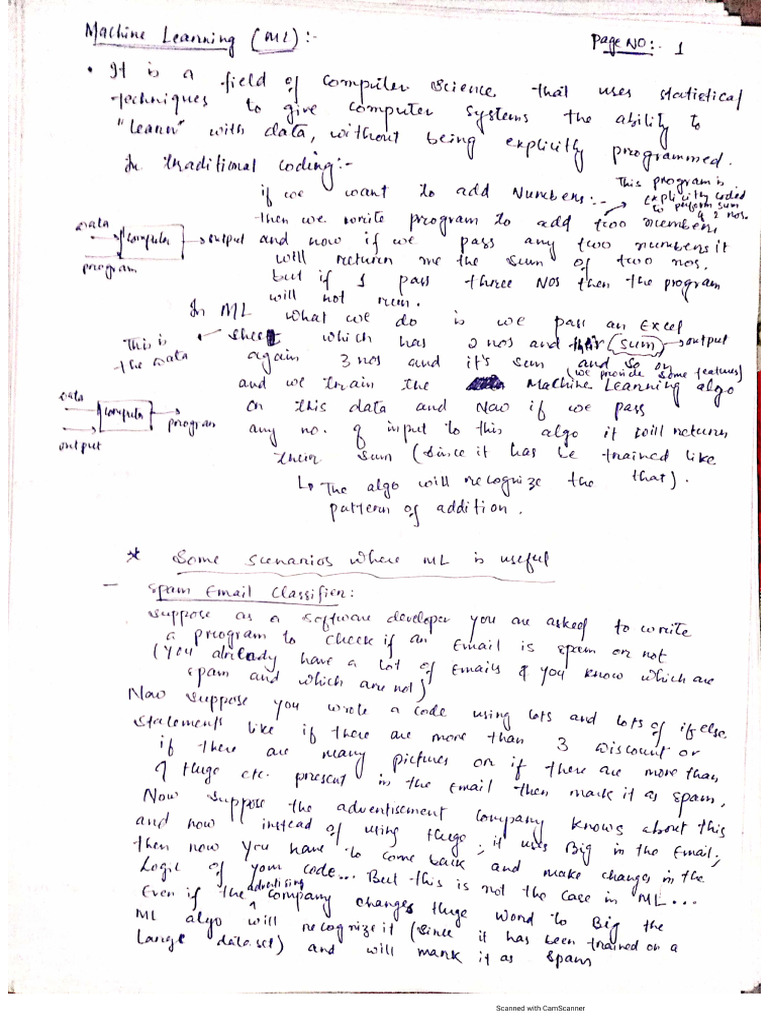 Machine Learning (ML):-
Page No:- 1
• It is a field of computer science that uses statistical
techniques to give computer systems the ability to
"learn" with data, without being explicitly programmed.
In traditional coding:-
This program is
explicitly coded
to perform sum
of 2 nos.
if we want to add Numbers:-
then we write program to add two numbers
Data
computer
output
program
and now if we pass any two numbers it
will return me the sum of two nos.
but if I pass three Nos then the program
will not run.
In ML what we do is we pass an Excel
This is
the data
sheet which has 2 nos and their (sum) → output
again 3 nos and it's sum and so on
(we provide some features)
and we train the Machine Learning algo
Data
computer
program
output
on this data and Now if we pass
any no. of input to this algo it will return
their sum (since it has be trained like
that).
↳ The algo will recognize the
pattern of addition.
* Some scenarios where ML is useful
— Spam Email Classifier:
Suppose as a software developer you are asked to write
a program to check if an Email is spam or not
(You already have a lot of Emails & you know which are
spam and which are not)
Now suppose you wrote a code using lots and lots of if else
statements like if there are more than 3 discount or
if there are many pictures or if there are more than
7 Huge etc. present in the Email then mark it as spam.
Now suppose the advertisement company knows about this
and now instead of using Huge, it uses Big in the Email,
then now you have to come back and make changes in the
Logic of your code... But this is not the case in ML...
Even if the advertising company changes Huge word to Big the
ML algo will recognize it (since it has been trained on a
large data.set) and will mark it as spam
Scanned with CamScanner